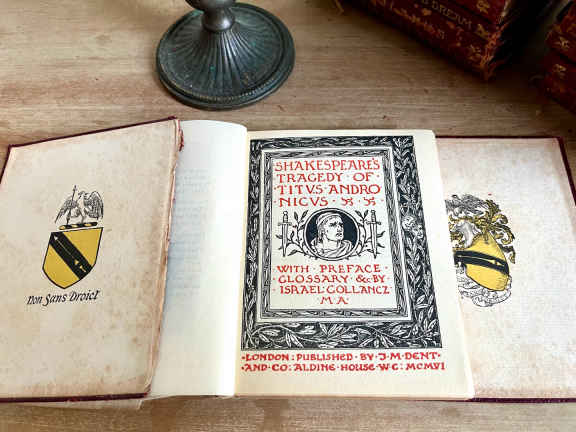 S DREAM
Non Sans Droict
SHAKESPEARE'S
TRAGEDY · OF ·
TITVS · ANDRO
NICVS ·
WITH · PREFACE ·
GLOSSARY · &c · BY
ISRAEL · GOLLANCZ
· M · A ·
· LONDON : PUBLISHED · BY · J · M · DENT ·
· AND · CO : ALDINE · HOUSE · W · C : MCMVI